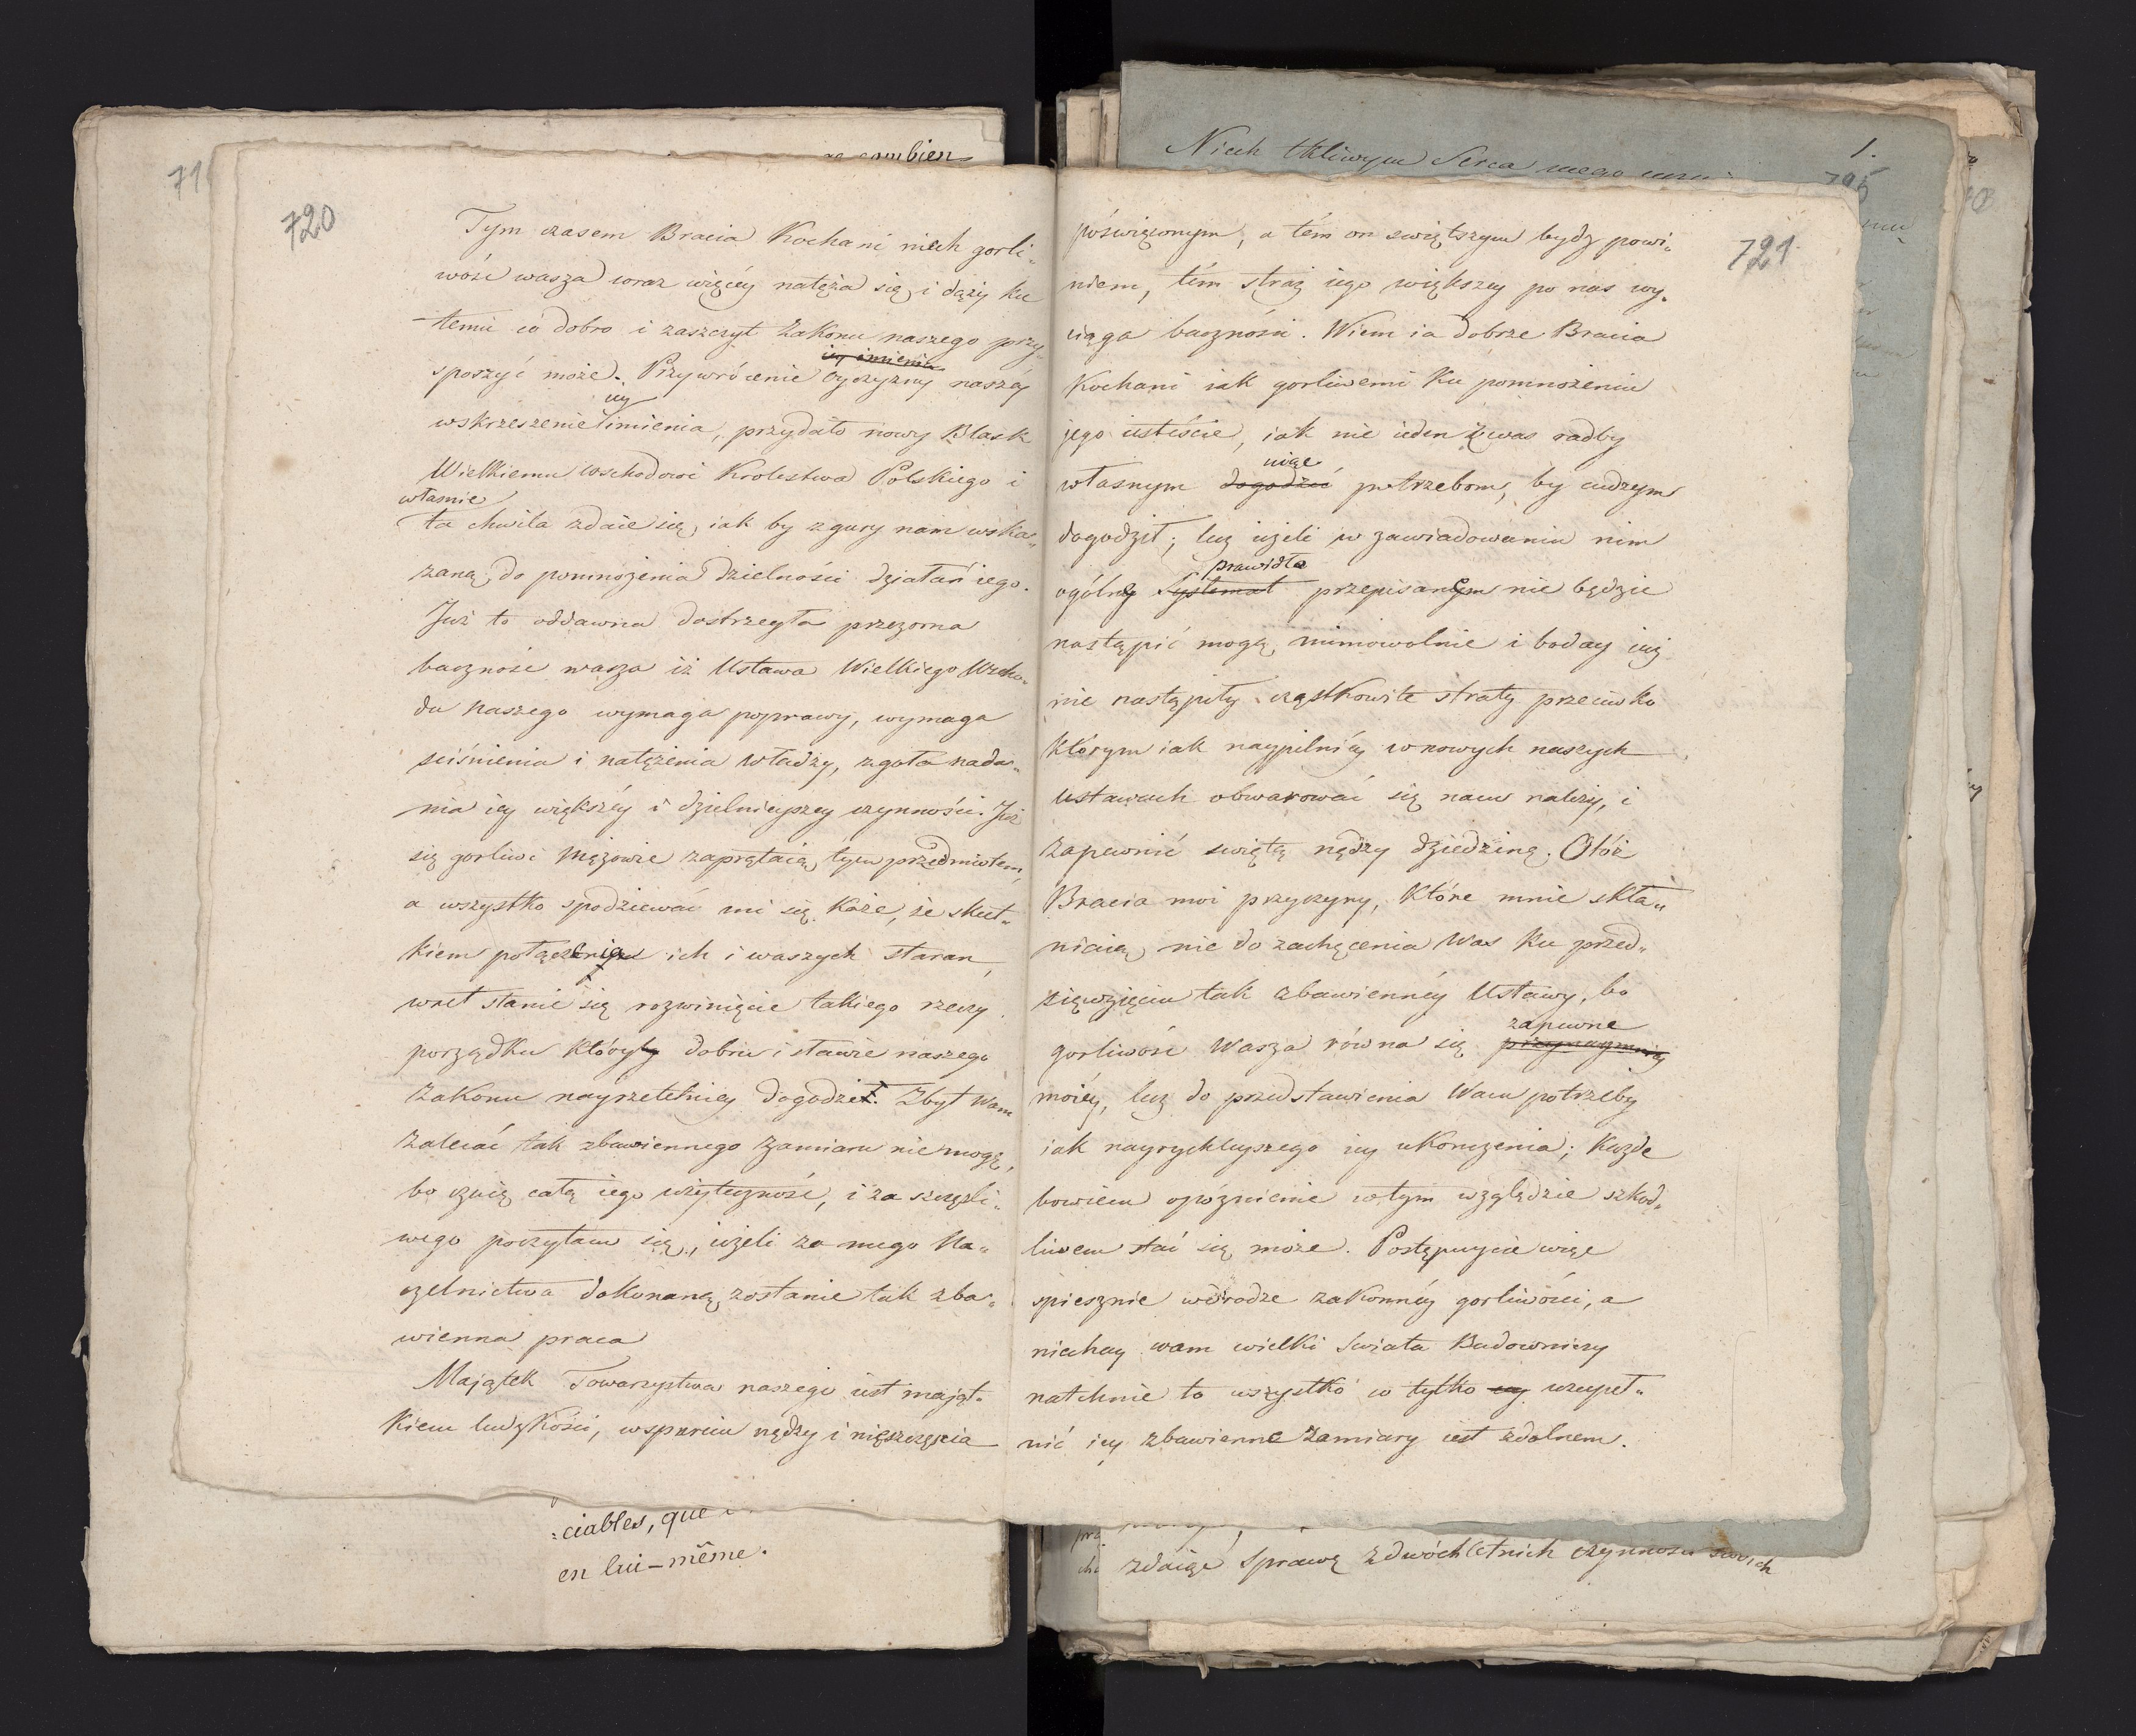 720
Tym czasem Bracia Kochani niech gorli„
wość wasza coraz więcéy natęża się i dąży ku
temu co dobro i zaszczyt Zakonu naszego przy„
iey imienia
sposzyć może. Przywrócenie Oyczyzny naszéy
iey
wskrzeszenie imienia, przydało nowy Blask
Wielkiemu Wschodowi Krolestwa Polskiego i
własnie
ta chwila zdaie się, iak by zgury nam wska„
zaną do pomnożenia Dzielności działań iego.
Już to oddawna dostrzegła przezorna
baczność wasza iż Ustawa Wielkiego Wscho„
du Naszego wymaga poprawy, wymaga
sciśnienia i natężenia władzy, zgoła nada„
nia iey większéy i dzielnieyszey czynności. Już
się gorliwi Mężowie zaprątaią tym przedmiotem,
a wszystko spodziewać mi się każe, że skut„
kiem ich i waszych staran,
wnet stanie się rozwinięcie takiego rzeczy
porządku któryby dobru i sławie naszego
Zakonu nayrzetelniey dogodził. Zbyt Wam
Zalecać tak zbawiennego zamiaru nie mogę,
bo czuię całą iego użyteczność, i za szczęśli„
wego poczytam się, ieżeli za mego Na„
czelnictwa dokonaną zostanie tak zba„
wienna praca
Majątek Towarzystwa naszego iest mająt„
kiem ludzkości, wsparciu nędzy i nieszczęścia
721
póświęconym, a tém on swiętszym bydź powi„
niem, tém straż iego większey po nas wy„
ciąga baczności. Wiem ia dobrze Bracia
Kochani iak gorliwemi Ku pomnożeniu
jego iesteście, iak nie ieden z was radby
uiąć
własnym dogodzić potrzebom, by cudzym
dogodził; lecz ieżeli w zawiadowaniu nim
prawidła
ogólne Systemat nie będzie
nastąpić mogą mimowolnie i boday iuż
nie nastąpiły cząstkowite straty przeciwko
którym iak naypilniéy w nowych naszych
ustawach obwarować się nam należy, i
zapewnić swiętą nędzy dziedzinę. Otóż
Bracia moi przyczyny, które mnie skła„
niaią, nie do zachęcenia Was ku przed„
sięwzięciu tak zbawiennéy Ustawy, bo
zapewne
gorliwość Wasza równa się przynaymniéy
moiéy, lecz do przedstawienia Wam potrzeby
iak nayrychleyszego iey ukończenia; Każde
bowiem opóźnienie w tym względzie szkod„
liwem stać się może. Postępuycie więc
spiesznie w drodze zakonnéy gorliwości, a
niechay wam wielki Swiata Budowniczy
natchnie to wszystko co tylko iey uzupeł„
nić iey zbawienne Zamiary iest zdolnem.
Niech tkliwym Serca mego
1.
:ciables, que
en lui-même.
zdaiąc Sprawę z dwóchletnich czynności swoich